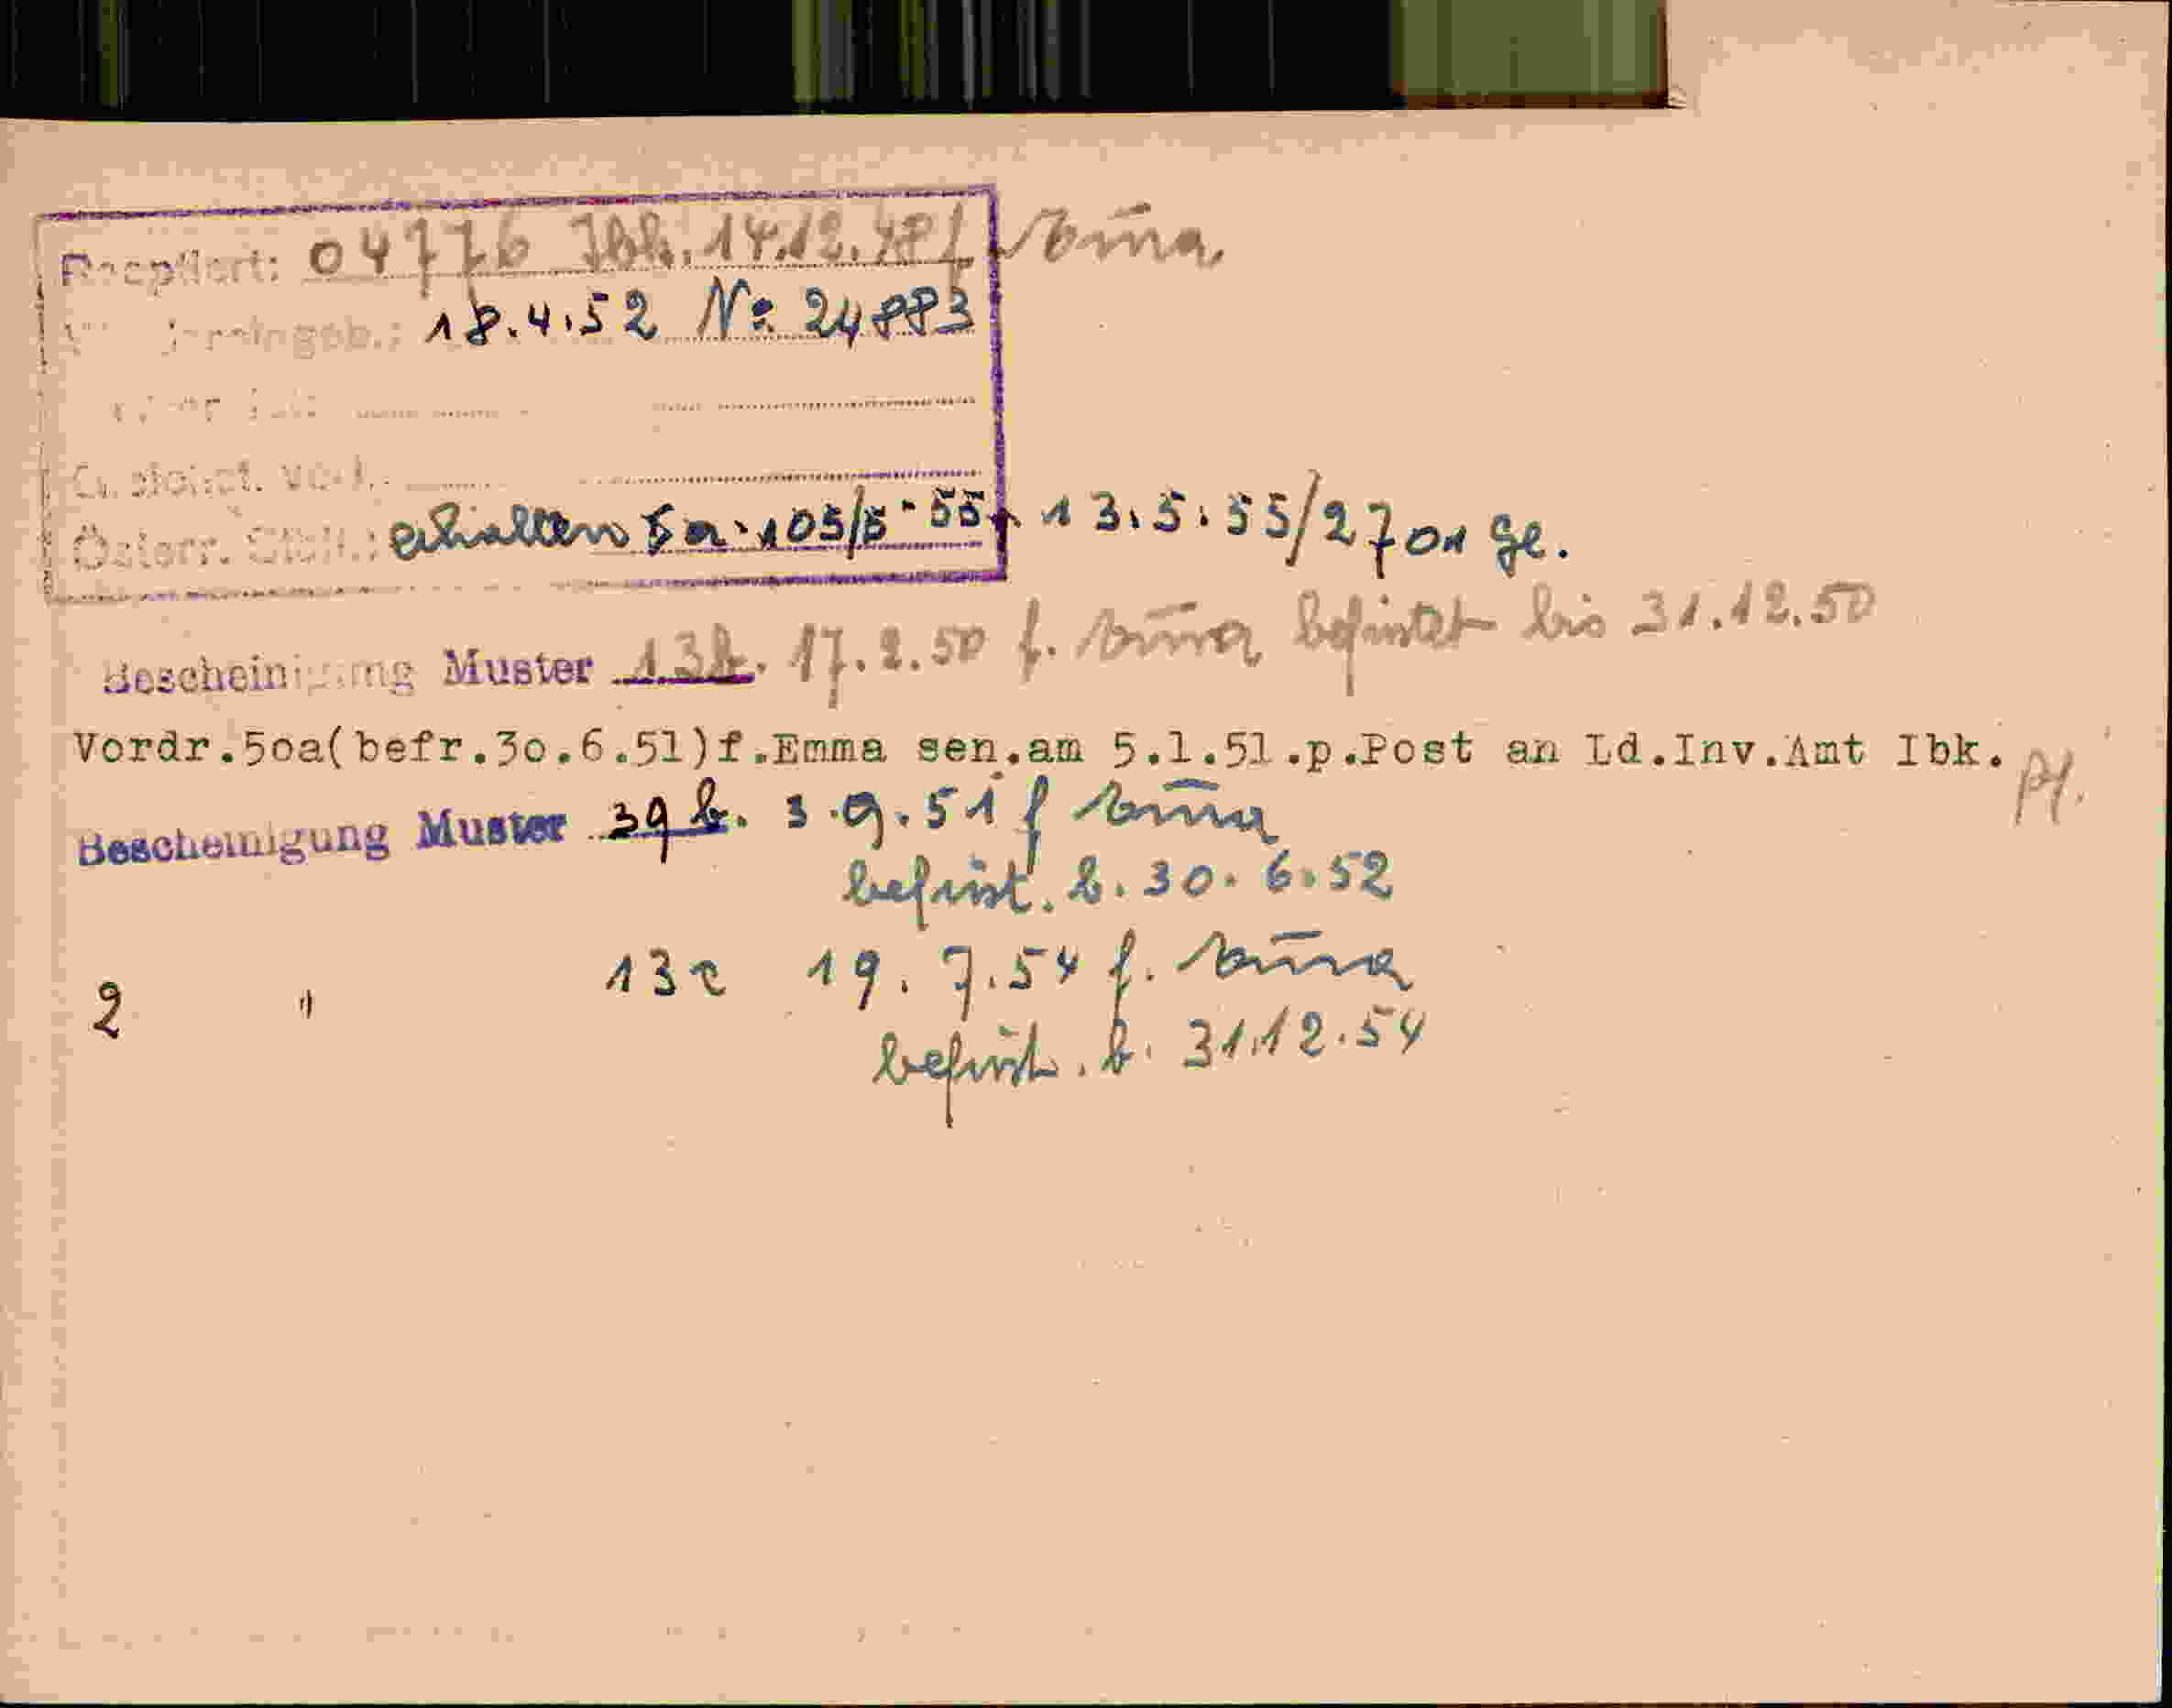 04776 Ibk. 14.12.48 f. Emma.
18.4.52 No. 24883
Österr. erhalten 5a-105/5-55 v. 13.5.55/2701 Ge.
Bescheinigung Muster 13b. 17.2.50 f. Emma befristet bis 31.12.50
Vordr.5oa(befr.3o.6.51)f.Emma sen.am 5.1.51.p.Post an Ld.Inv.Amt Ibk.
Bescheinigung Muster 39b. 3.9.51 f Emma
befrist. b. 30.6.52
2 " 13c 19.7.54 f. Emma
befrist. b. 31.12.54